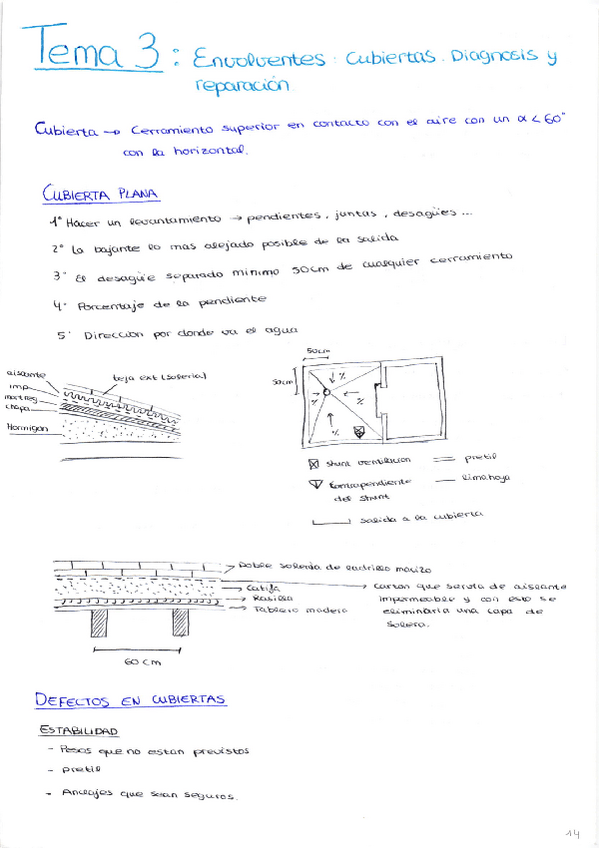 Tema 3: Envolventes. Cubiertas. Diagnosis y
reparación
Cubierta → Cerramiento superior en contacto con el aire con un α < 60°
con la horizontal.
CUBIERTA PLANA
1° Hacer un levantamiento → pendientes, juntas, desagües...
2° La bajante lo mas alejado posible de la salida
3° El desagüe separado minimo 50cm de cualquier cerramiento
4° Porcentaje de la pendiente
5° Direccion por donde va el agua
aislante
imp
mortreg
chapa
Hormigon
teja ext (soleria)
50cm
50cm
%
%
%
%
shunt ventilacion
pretil
Contrapendiente
del shunt
limahoya
salida a la cubierta
Doble soleria de ladrillo macizo
Catifa
Rasilla
Tablero madera
Carton que servia de aislante
impermeable y con esto se
eliminaria una capa de
solera.
60 cm
DEFECTOS EN CUBIERTAS
ESTABILIDAD
- Pesos que no estan previstos
- pretil
- Anclajes que sean seguros.
14